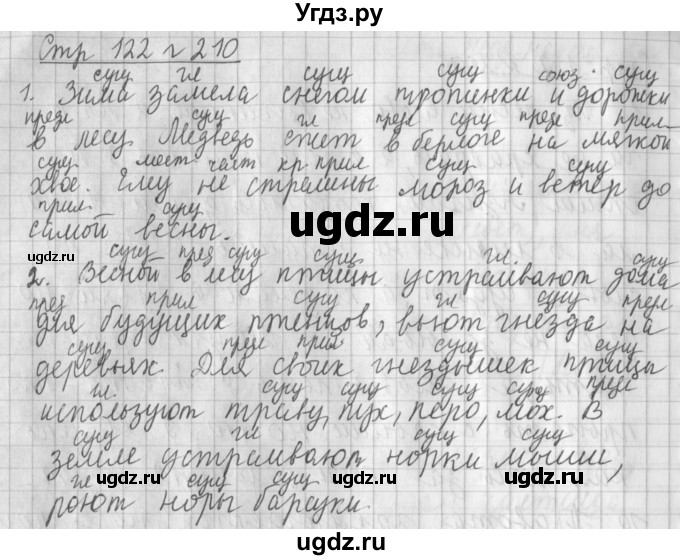 Угдз.ру
Стр 122 г 210
сущ гл сущ сущ союз. сущ
1. Зима замела снегом тропинки и дорожки
предл сущ гл предл сущ предл прил
в лесу. Медведь спит в берлоге на мягкой
сущ. мест част кр. прил сущ сущ
хвое. Ему не страшны мороз и ветер до
прил. сущ
самой весны.
ugdz.ru
ugdz.ru
ugdz.ru
сущ пред сущ сущ гл. сущ
2. Весной в лесу птицы устраивают дома
пред прил сущ гл сущ предл
для будущих птенцов, вьют гнезда на
сущ предл прил сущ сущ
деревьях. Для своих гнездышек птицы
гл. сущ сущ сущ сущ предл
используют траву, пух, перо, мох. В
сущ гл сущ сущ
земле устраивают норки мыши,
ugdz.ru
ugdz.ru
гл сущ сущ
роют норы барсуки.
ugdz.ru